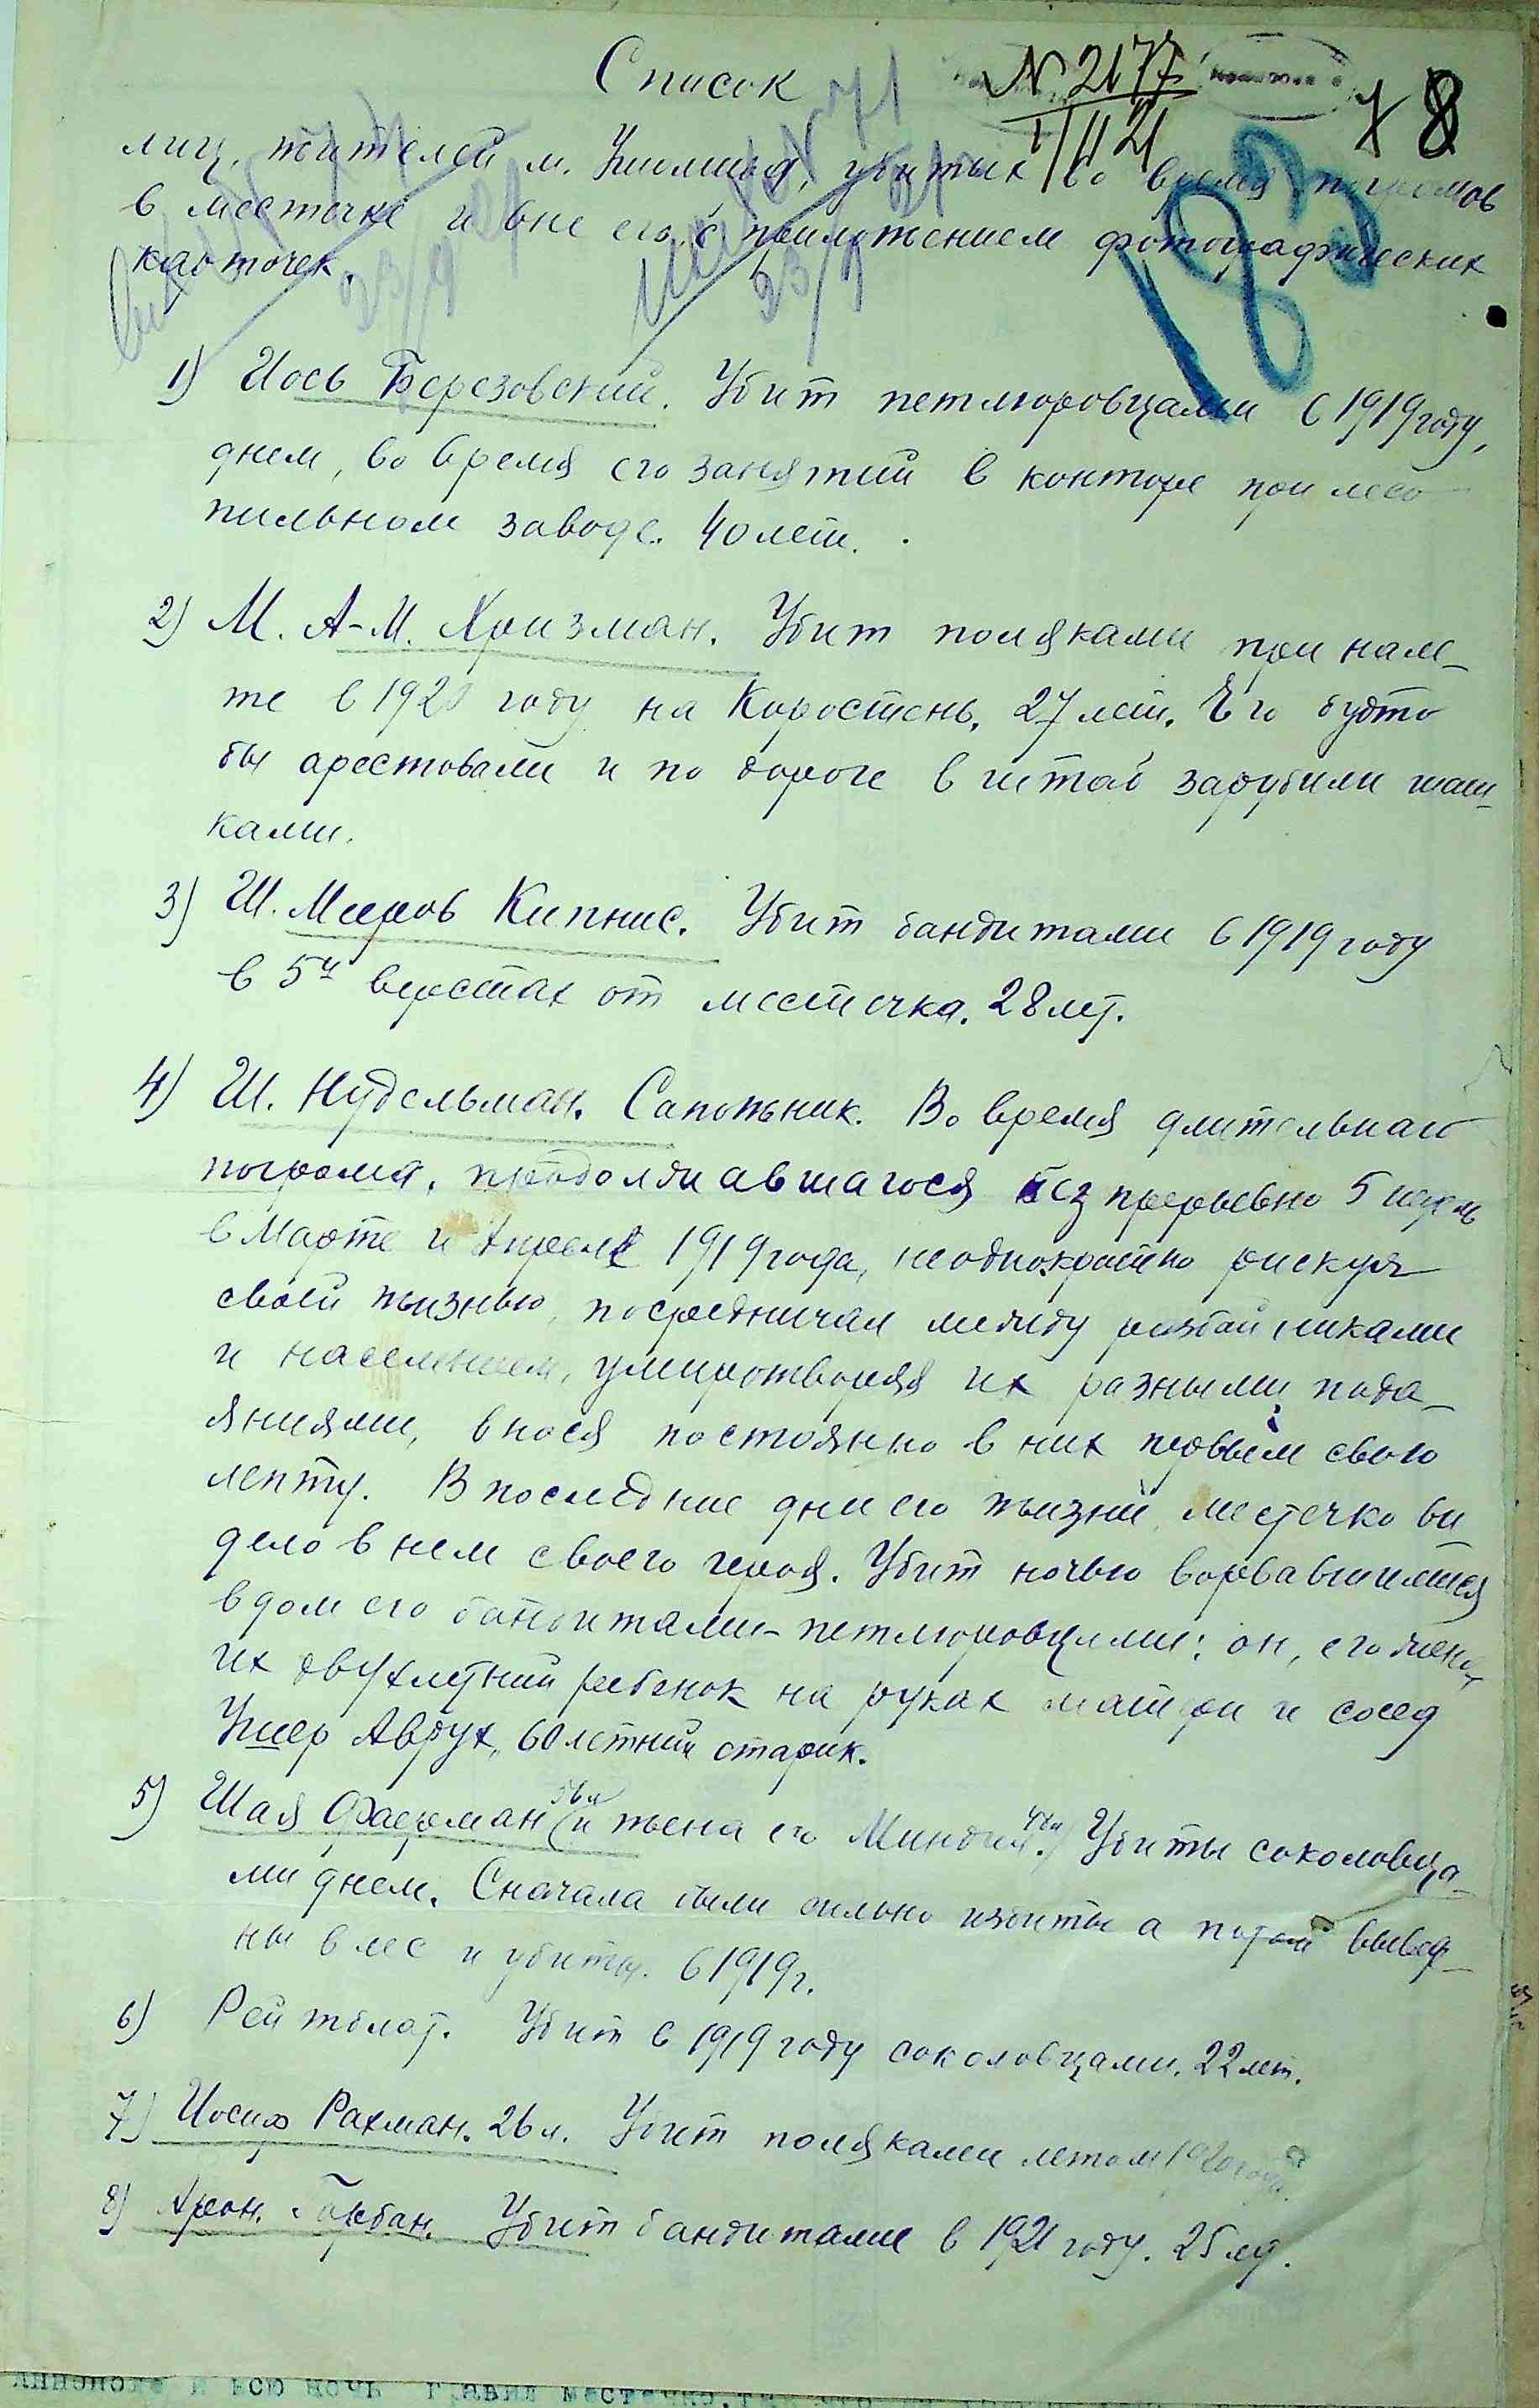 Список
N 2177
1/II 21
8
183
лиц, жителей м. Ушомира, убитых во время погромов
в местечке и вне его, с приложением фотографических
карточек.
23/9
23/9
1) Иось Березовский. Убит петлюровцами в 1919 году,
днем, во время его занятий в конторе при лесо
пильном заводе. 40 лет.
2) М. А-М. Хризман. Убит поляками при нале-
те в 1920 году на Коростень. 27 лет. Его будто
бы арестовали и по дороге в штаб зарубили шаш-
ками.
3) Ш. Мееров Кипнис. Убит бандитами в 1919 году
в 5и верстах от местечка. 28 лет.
4) Ш. Нудельман. Сапожник. Во время длительнаго
погрома, продолжавшагося безпрерывно 5 недель
в Марте и Апреле 1919 года, неоднократно рискуя
своей жизнью, посредничал между разбойниками
и населением, умиротворяя их разными пода-
яниями, внося постоянно в них первым свою
лепту. В последние дни его жизни местечко ви
дело в нем своего героя. Убит ночью ворвавшимися
в дом его бандитами-петлюровцами: он, его жена,
их двухлетний ребенок на руках матери и сосед
Ушер Авбух, 60 летний старик.
5) Шая Фаерман 56 л (и жена его Миндля 48 л.) Убиты соколовца-
ми днем. Сначала были сильно избиты а потом вывед-
ны в лес и убиты. в 1919 г.
6) Рейтблат. Убит в 1919 году соколовцами. 22 лет.
7) Иосиф Рахман. 26 л. Убит поляками летом 1920 года.
8) Арон Гарбан. Убит бандитами в 1921 году. 25 лет.
и всю ночь грабил местечко,